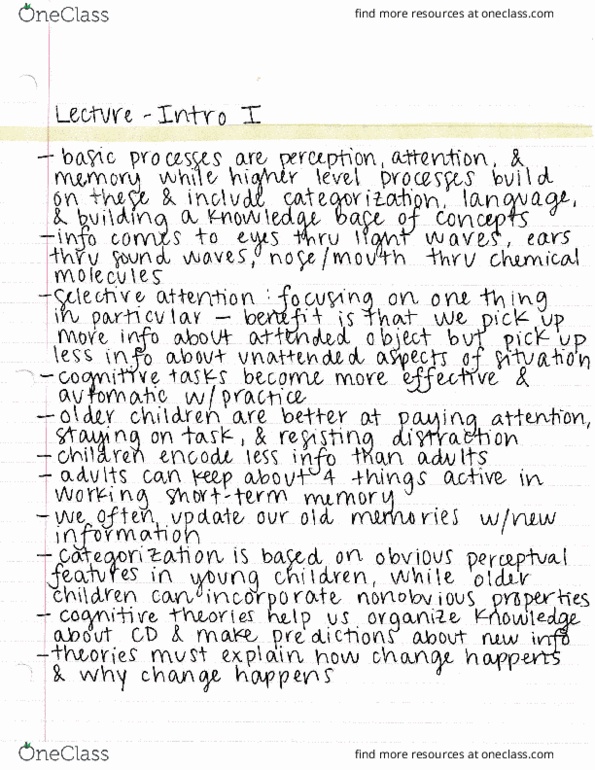 OneClass
find more resources at oneclass.com
Lecture - Intro I
- basic processes are perception, attention, &
memory while higher level processes build
on these & include categorization, language,
& building a knowledge base of concepts
- info comes to eyes thru light waves, ears
thru sound waves, nose/mouth thru chemical
molecules
- selective attention: focusing on one thing
in particular - benefit is that we pick up
more info about attended object but pick up
less info about unattended aspects of situation
- cognitive tasks become more effective &
automatic w/practice
- older children are better at paying attention,
staying on task, & resisting distraction
- children encode less info than adults
- adults can keep about 4 things active in
working short-term memory
- we often update our old memories w/new
information
- categorization is based on obvious perceptual
features in young children, while older
children can incorporate nonobvious properties
- cognitive theories help us organize knowledge
about CD & make predictions about new info
- theories must explain how change happens
& why change happens
OneClass
find more resources at oneclass.com